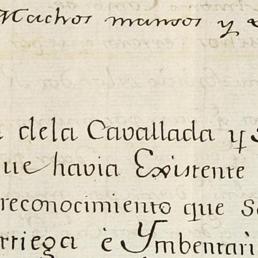 Machos mansos y
dela Cavallada y
que havia Existente
reconocimiento que Se
rriega è Ymbentari